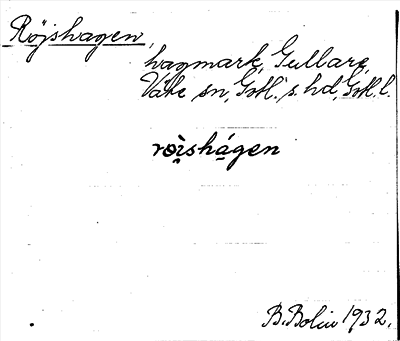 Röjshagen,
hagmark, Gullarve,
Väte sn, Gotl. s. hd, Gotl. l.
rοi̯shágen
B. Bolin 1932.